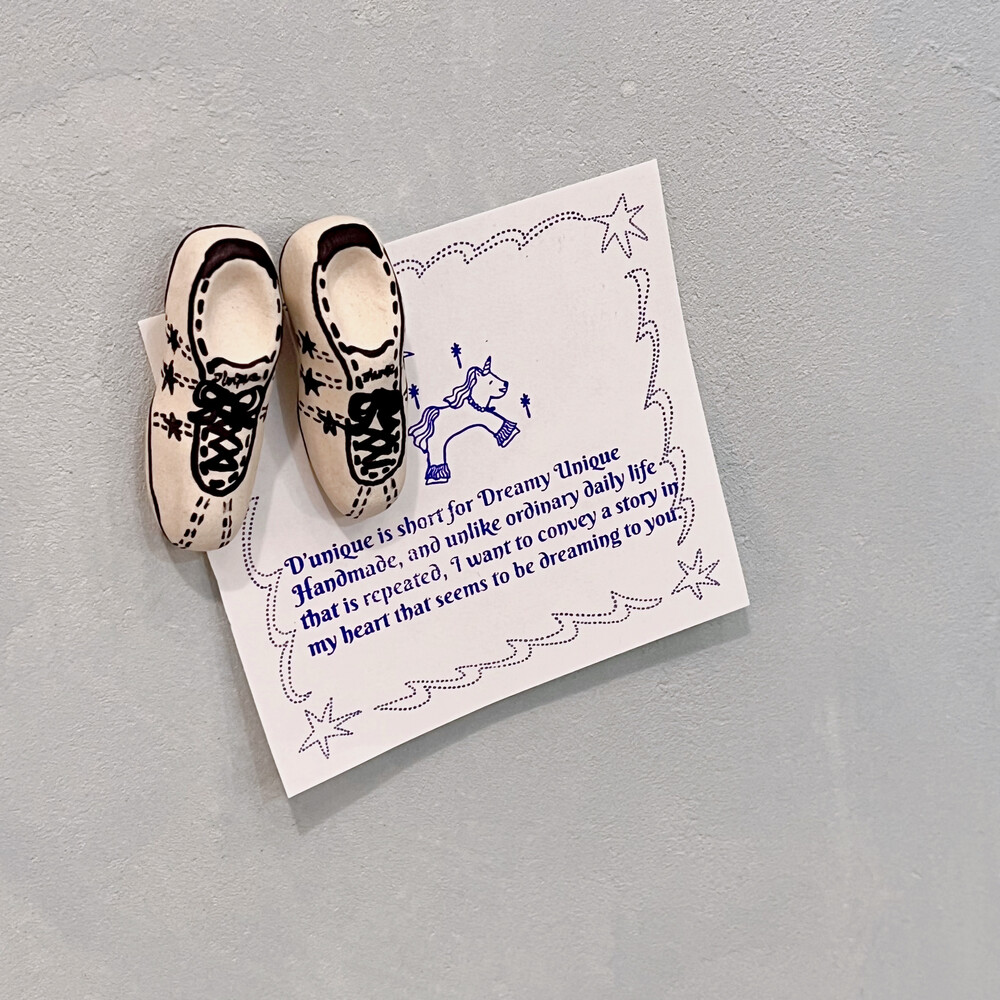 D'unique is short for Dreamy Unique
Handmade, and unlike ordinary daily life
that is repeated, I want to convey a story in
my heart that seems to be dreaming to you.